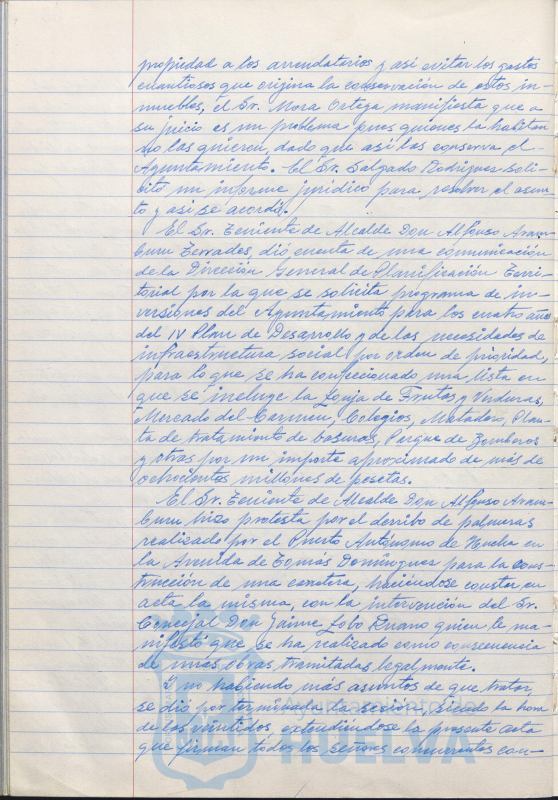 propiedad a los arrendatarios y asi evitar los gastos
cuantiosos que origina la conservación de estos in-
muebles, el Sr. Mora Ortega manifiesta que a
su juicio es un problema pues quienes la habitan
no las quieren, dado que asi las conserva el
Ayuntamiento. El Sr. Salgado Rodriguez soli-
citó un informe jurídico para resolver el asun-
to y asi se acordó.
El Sr. Teniente de Alcalde Don Alfonso Aram-
buru Terrades, dió cuenta de una comunicación
de la Dirección General de Planificación Terri-
torial por la que se solicita programa de in-
versiones del Ayuntamiento para los cuatro años
del IV Plan de Desarrollo y de las necesidades de
infraestructura social por orden de prioridad,
para lo que se ha confeccionado una lista en
que se incluye la Lonja de Frutas y Verduras,
Mercado del Carmen, Colegios, Matadero, Plan-
ta de tratamiento de basuras, Parque de Bomberos
y otras por un importe aproximado de más de
ochocientos millones de pesetas.
El Sr. Teniente de Alcalde Don Alfonso Aram-
buru hizo protesta por el derribo de palmeras
realizado por el Puerto Autónomo de Huelva en
la Avenida de Tomás Domínguez para la cons-
trucción de una carretera, haciéndose constar en
acta la misma, con la intervención del Sr.
Concejal Don Jaime Lobo Ruano quien le ma-
nifestó que se ha realizado como consecuencia
de unas obras tramitadas legalmente.
Y no habiendo más asuntos de que tratar,
se dió por terminada la sesión, siendo la hora
de las veintidos, extendiéndose la presente acta
que firman todos los señores concurrentes con-
HUELVA